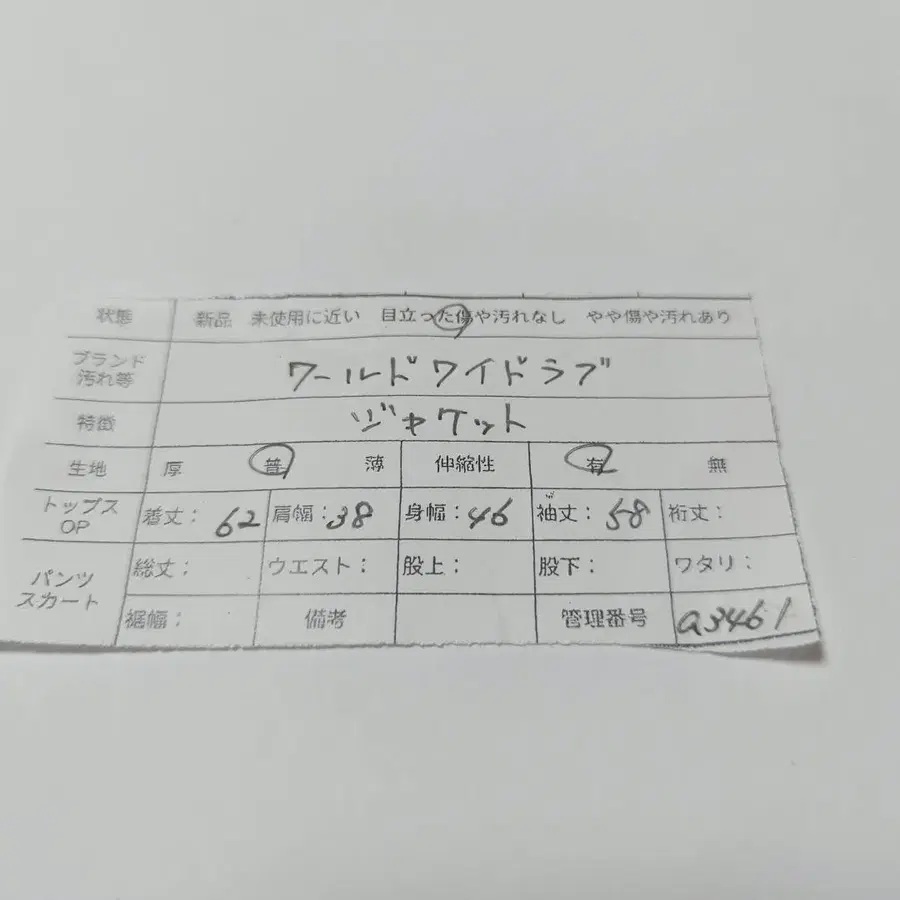 状態 新品 未使用に近い 目立った傷や汚れなし やや傷や汚れあり
ブランド 汚れ等 ワールドワイドラブ
特徴 ジャケット
生地 厚 普 薄 伸縮性 有 無
トップス OP 着丈： 62 肩幅：38 身幅：46 袖丈：58 裄丈：
パンツ スカート 総丈： ウエスト： 股上： 股下： ワタリ：
裾幅： 備考 管理番号 a3461